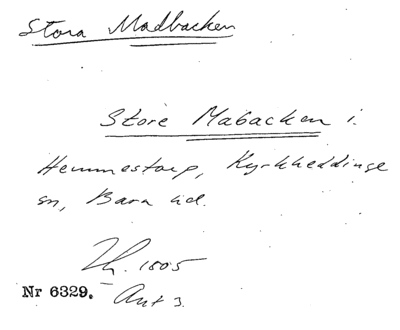 Stora Madbacken
Store Mabacken i.
Hemmestorp, Kyrkheddinge
sn, Bara hd.
Th. 1805
Nr 6329. Ant 3.